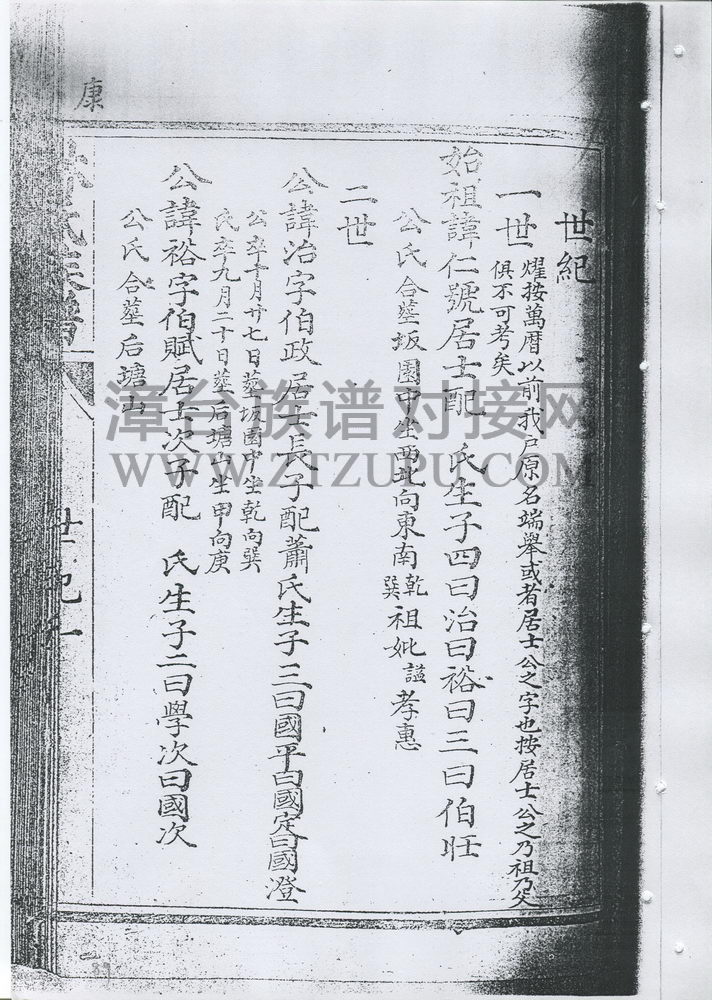 康
世紀
一世
燿按萬曆以前我戸原名端舉或者居士公之字也按居士公之乃祖乃父
俱不可考矣
始祖諱仁號居士配 氏生子四曰治曰裕曰三曰伯旺
公氏合塟坂園中坐西北向東南乾巽祖妣諡孝惠
二世
公諱治字伯政居士長子配蕭氏生子三曰國平曰國定曰國澄
公卒十月廿七日塟坂園中坐乾向巽
氏卒九月二十日塟后塘山坐甲向庚
公諱裕字伯賦居士次子配 氏生子二曰學次曰國次
公氏合塟后塘山
氏族譜
世紀
漳台族谱对接网
WWW.ZTZUPU.COM